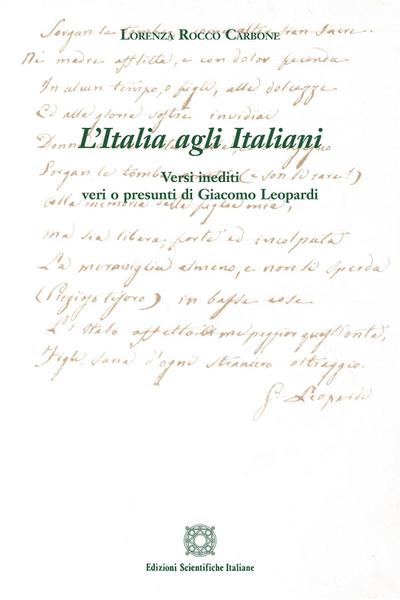 LORENZA ROCCO CARBONE
Sorgan le tombe
Ne madre afflitta, e con dolor feconda
In alcun tempo, o figli, alle dolcezze
Ed alle gloria vostre invidiai
Donn
L'Italia agli Italiani
Sorgan le tombe (e son sì rare!)
Versi inediti
veri o presunti di Giacomo Leopardi
alla memoria
ma sia libera, forte ed incolpata
La meraviglia almeno, e non si sperda
(Prezioso tesoro) in basse cose
L' Italo affetto me peggior quell'onta,
Figli, sana d'ogni straniero oltraggio.
G. Leopardi
Edizioni Scientifiche Italiane